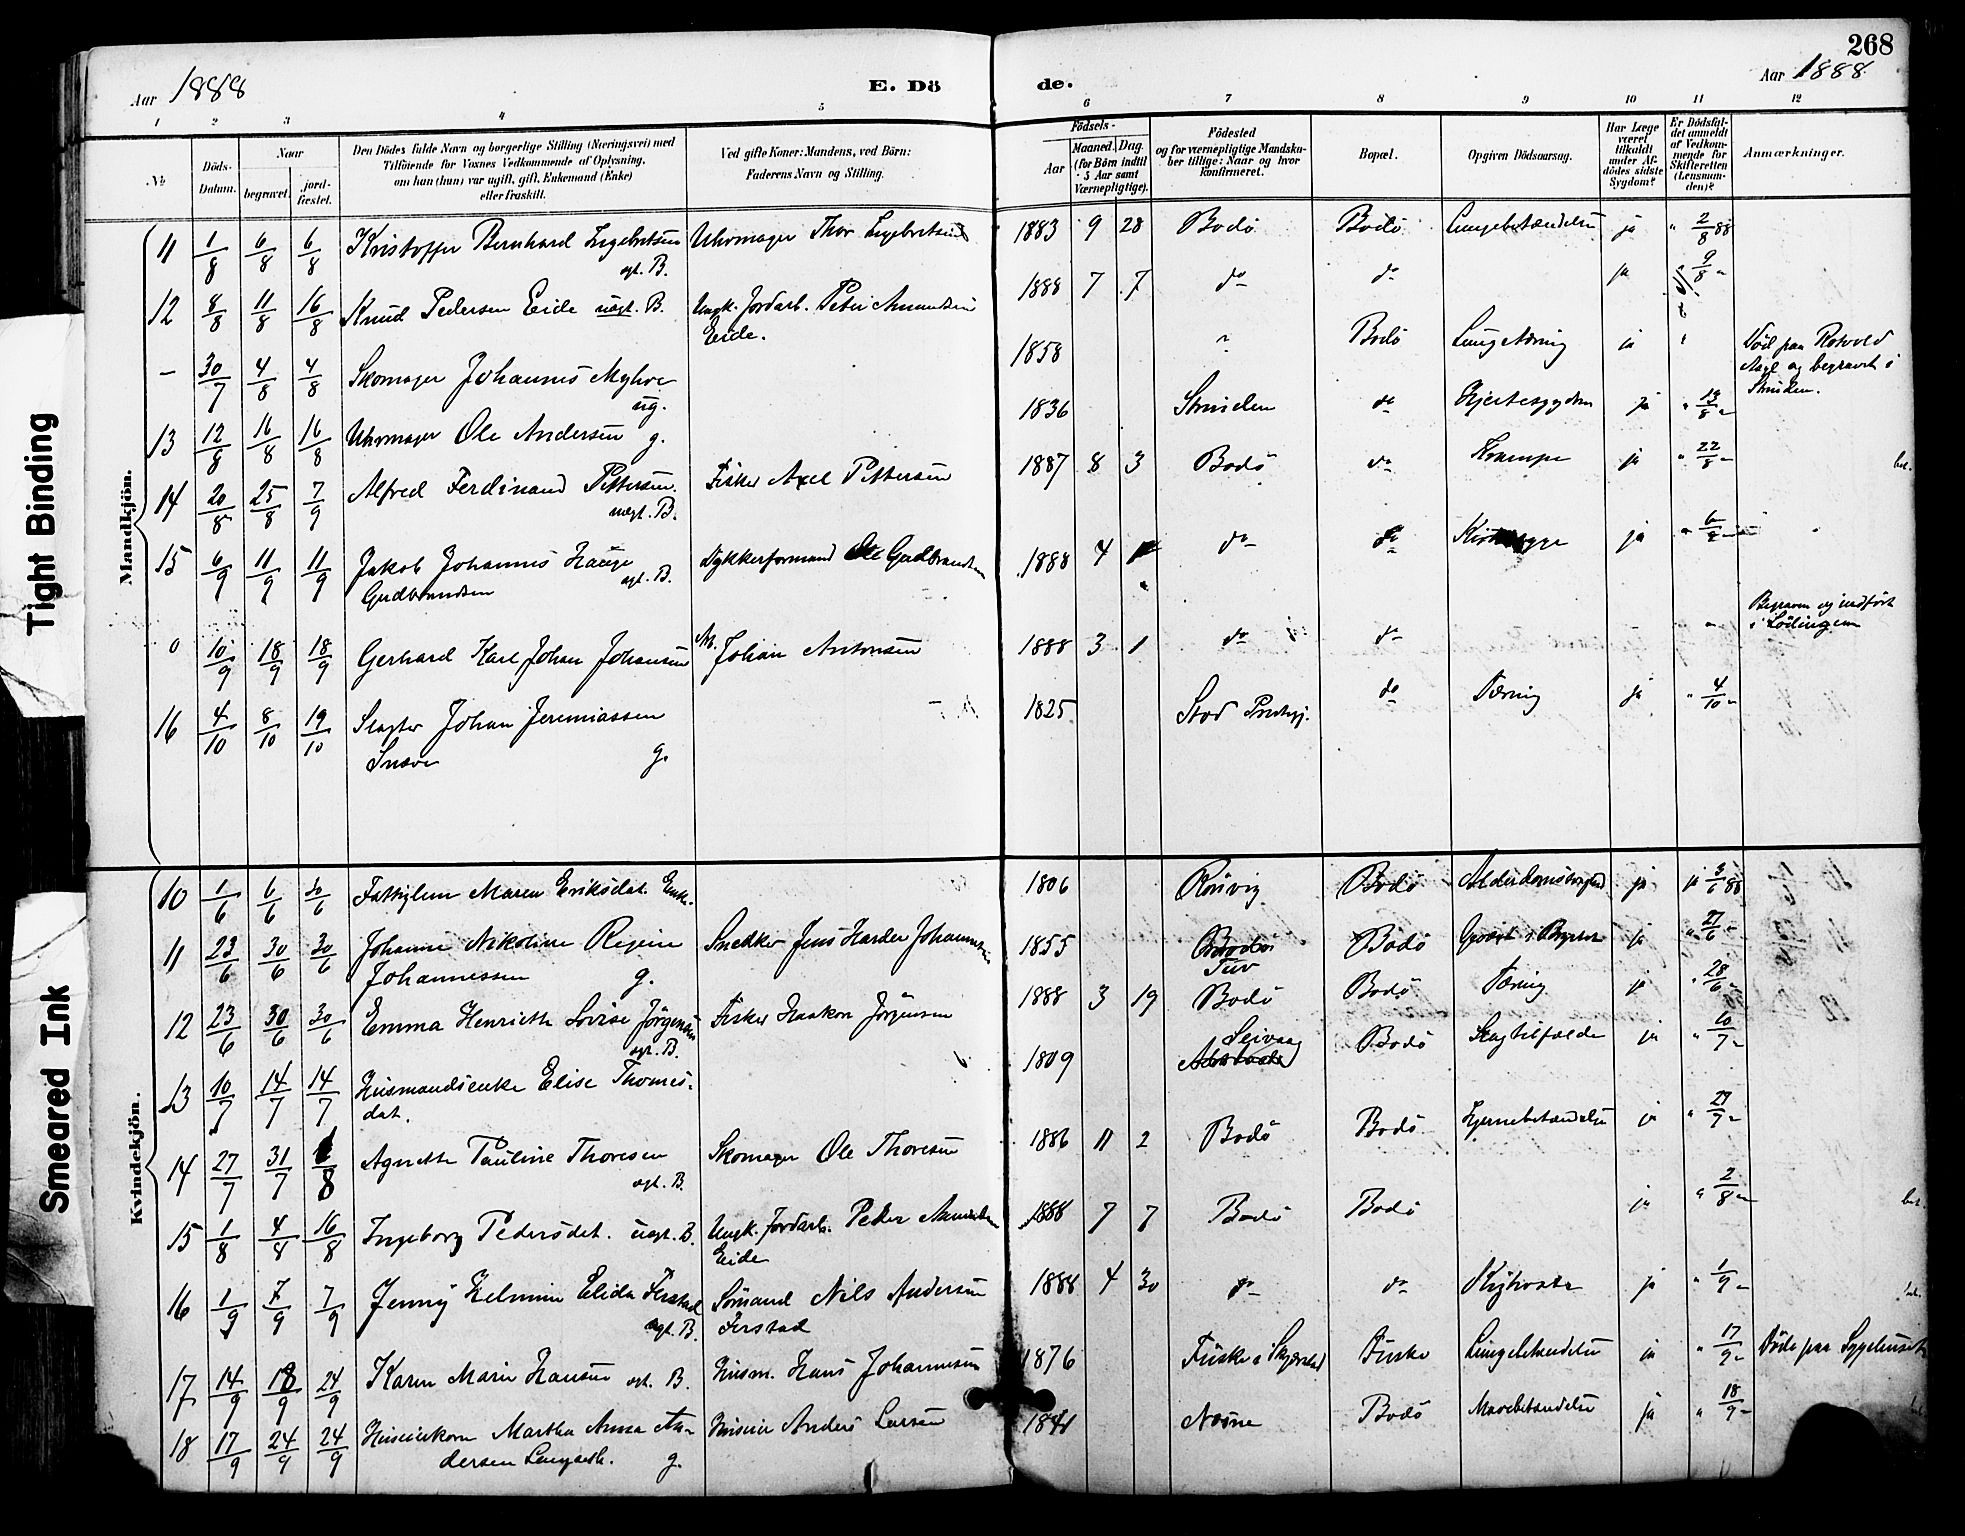 268
Aar 1888
E. Dö
de.
Aar 1888
1 2 3 4 5 6 7 8 9 10 11 12
No
Döds-Datum.
Naar
begravet.
jord-fæstet.
Den Dödes fulde Navn og borgerlige Stilling (Næringsvei) med
Tilföiende for Voxnes Vedkommende af Oplysning,
om han (hun) var ugift, gift, Enkemand (Enke)
eller fraskilt.
Ved gifte Koner: Mandens, ved Börn:
Faderens Navn og Stilling.
Födsels-
Aar
Maaned. Dag.
(for Börn indtil
5 Aar samt
Værnepligtige).
Födested
og for værnepligtige Mandska-
ber tillige: Naar og hvor
konfirmeret.
Bopæl.
Opgiven Dödsaarsag.
Har Læge
været
tilkaldt
under Af-
dödes sidste
Sygdom?
Er Dödsfal-
det anmeldt
af Vedkom-
mende for
Skifteretten
(Lensman-
den)?
Anmærkninger.
Mandkjön.
11 1/8 6/8 6/8 Kristoffer Bernhard Ingebretsen Uhrmager Thor Ingebretsen 1883 9 28 Bodö Bodö Lungebetændelse ja " 2/8 88
ægt. B.
12 8/8 11/8 16/8 Knud Pedersen Eide uægt. B. Ungk. Jordarb. Peter Amundsen 1888 7 7 do do ja 9/8
Eide.
– 30/7 4/8 4/8 Skomager Johannes Myhre 1858 Bodö Lungetæring ja " Död paa Rotvold
ug. Asyl og begravet i
Strinden.
13 12/8 16/8 16/8 Uhrmager Ole Andersen g. 1836 Strinden do Hjertesygdom ja " 13/8
14 20/8 25/8 7/9 Alfred Ferdinand Pettersen Fisker Axel Pettersen 1887 8 3 Bodö do Krampe ja " 22/8
uægt. B.
15 6/9 11/9 11/9 Jakob Johannes Hauge Dykkerformand Ole Gudbrandsen 1888 4 do do ja
Gudbrandsen ægt. B.
0 10/9 18/9 18/9 Gerhard Karl Johan Johansen Arb. Johan Antonsen 1888 3 1 do do Begraven og indfört
i Lödingen
16 4/10 8/10 19/10 Slagter Johan Jeremiassen 1825 Stod Prstgj. do Tæring ja " 4/10
Snsöv g.
Kvindekjön.
10 1/6 6/6 30/6 Fattiglem Maren Eriksdat. Enke. 1806 Rörvig Bodö Alderdomssvaghed ja ja 3/6 88
11 23/6 30/6 30/6 Johanne Nikoline Regine Snedker Jens Harder Johannesen 1855 Tuv Bodö ja " 27/6
Johannessen g.
12 23/6 30/6 30/6 Emma Henriette Lovise Jörgensen Fisker Haakon Jörgensen 1888 3 19 Bodö Bodö Tæring ja " 28/6
ægt. B.
13 10/7 14/7 14/7 Husmandsenke Elise Thomes- 1809 Seivaag Bodö Slagtilfælde ja " 10/7
dat.
14 27/7 31/7 /8 Agnethe Pauline Thoresen Skomager Ole Thoresen 1886 11 2 Bodö Bodö Hjernebetændelse ja "
ægt. B.
15 1/8 4/8 16/8 Ingeborg Pedersdat. uægt. B. Ungk. Jordarb. Peder Amundsen 1888 7 7 Bodö Bodö ja " 2/8
Eide
16 1/9 7/9 7/9 Jenny Helmine Elida Ferstad Sömand Nils Andersen 1888 4 30 do do Kighoste ja " 1/9
ægt. B. Ferstad
17 14/9 18/9 24/9 Karen Marie Hansen ægt. B. Husm. Hans Johannesen 1876 Fuske i Skjerstad Fuske Lungebetændelse ja " 17/9 Döde paa Sygehuset
18 17/9 24/9 24/9 Huseierkone Martha Anna An- Huseier Anders Larsen 1841 Næsne Bodö Mavebetændelse ja " 18/9
dersen Lengseth. g.
Tight Binding
Smeared Ink